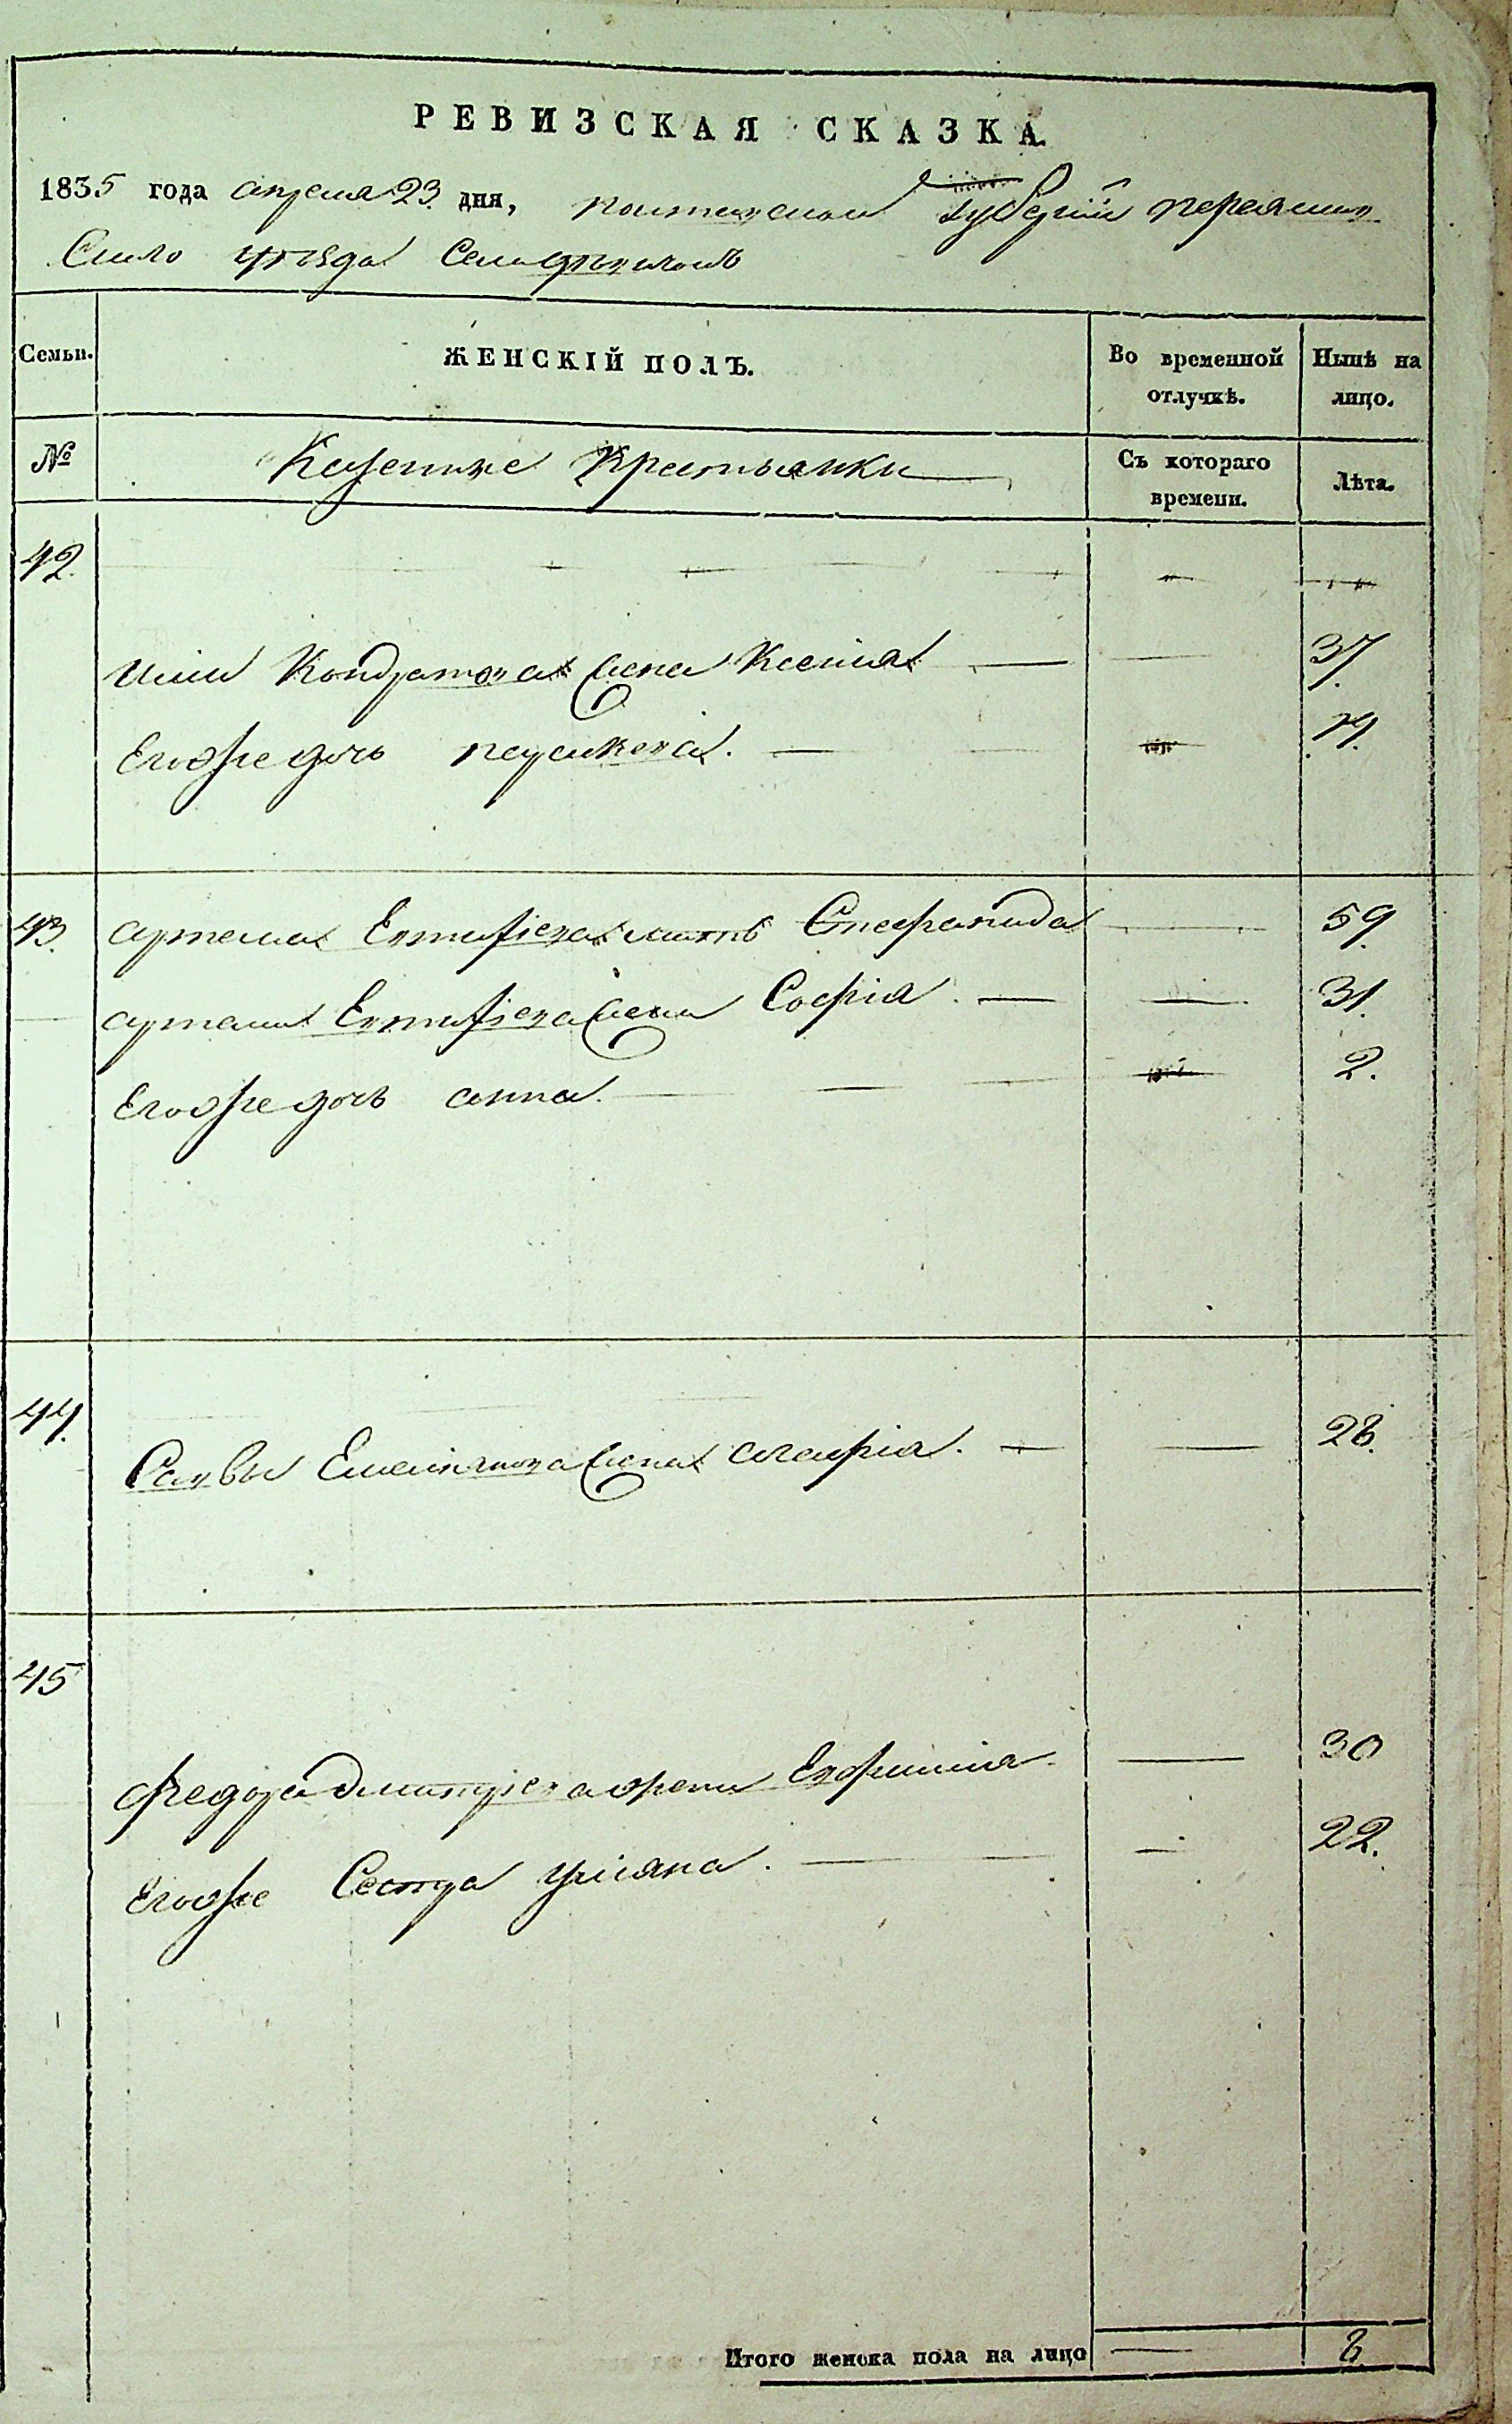 РЕВИЗСКАЯ СКАЗКА
1835 года апреля 23. дня, полтавской губернии переяслав
Скаго уезда Села
Семьи.
ЖЕНСКІЙ ПОЛЪ.
Во временной отлучкѣ.
Нынѣ на лицо.
№
Казенные Крестьянки
Съ котораго времени.
Лѣта.
42.
Кондратова жена Ксенія 37.
Егоже дочь
43. артема Евтифіева мать Стефанида 59.
артема Евтифіева жена Софія. 31.
Егоже дочь анна. 2.
44.
Саввы Емельянова жена агафія. 28.
45
Федора Дмитріева жена Евфимія 30
Егоже Сестра уліяна. 22.
Итого женска пола на лицо 8